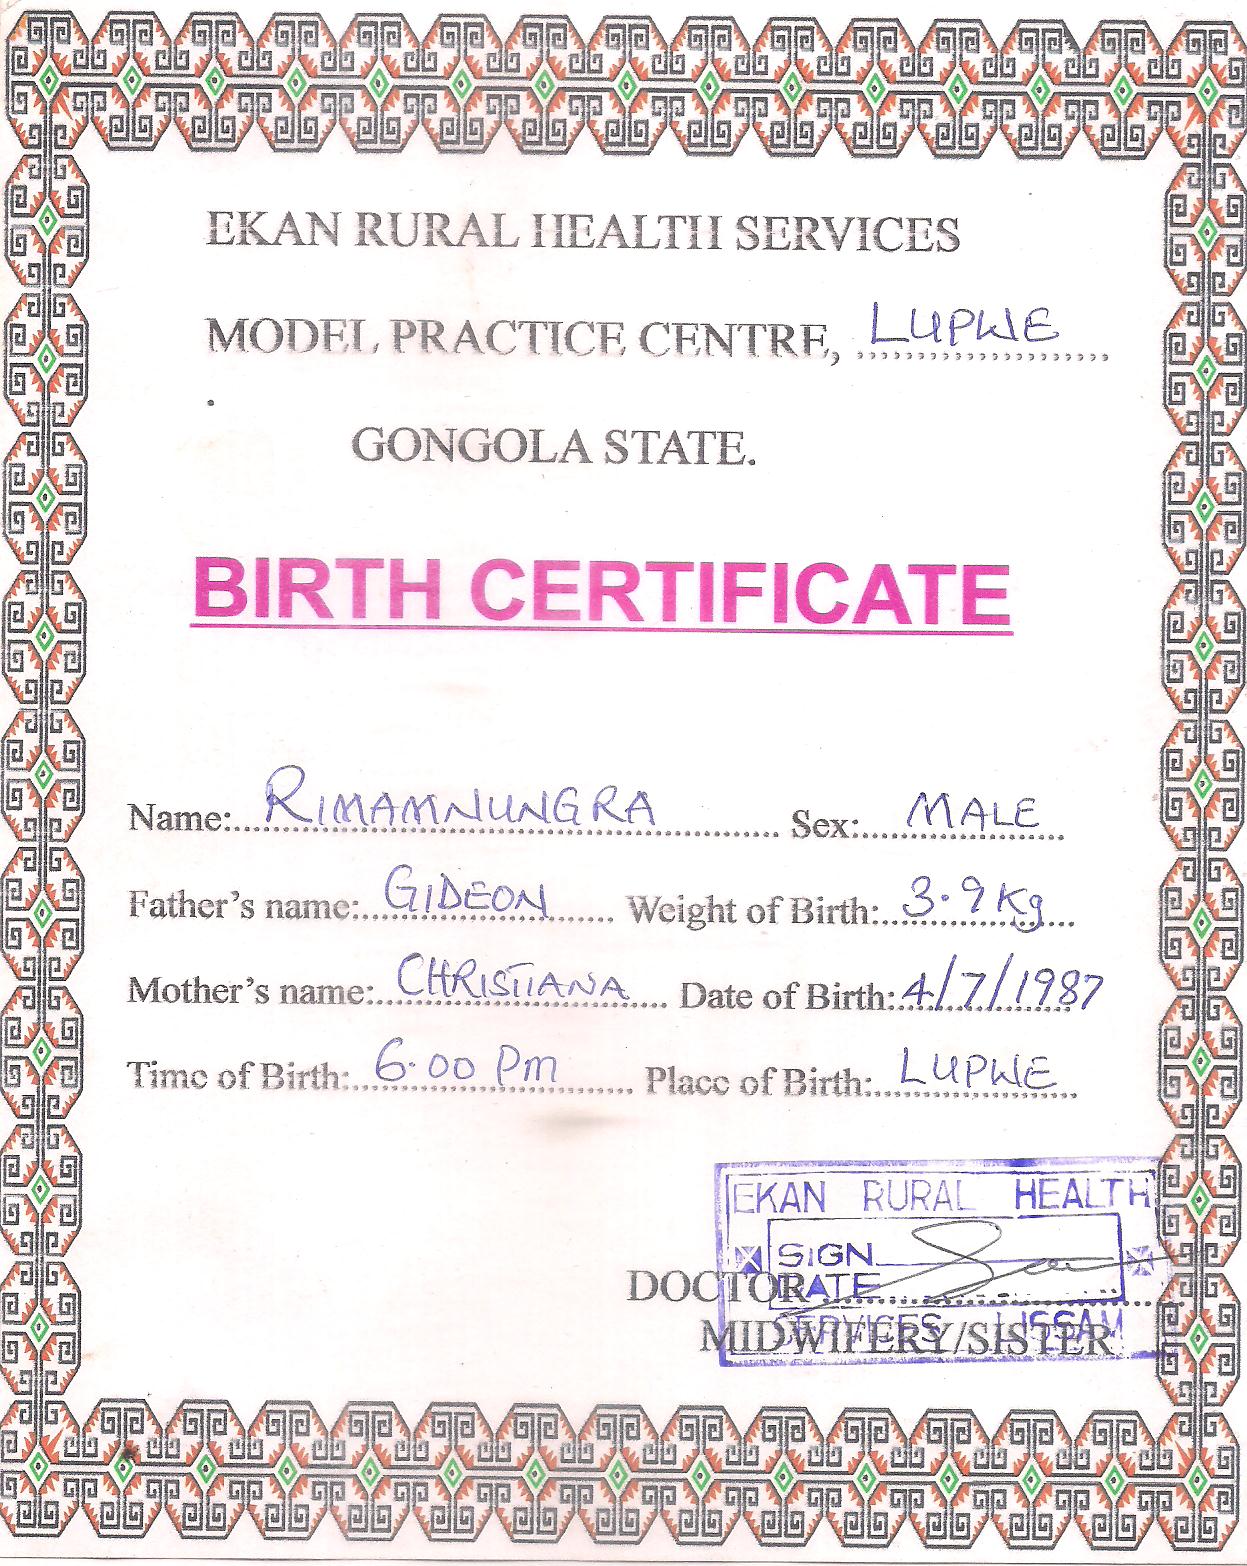 EKAN RURAL HEALTH SERVICES
MODEL PRACTICE CENTRE, LUPWE
GONGOLA STATE.
BIRTH CERTIFICATE
Name: RIMAMNUNGRA Sex: MALE
Father's name: GIDEON Weight of Birth: 3.9 Kg
Mother's name: CHRISTIANA Date of Birth: 4/7/1987
Time of Birth: 6.00 Pm Place of Birth: LUPWE
EKAN RURAL HEALTH
SIGN
DOCTOR DATE
SERVICES LISSAM
MIDWIFERY/SISTER